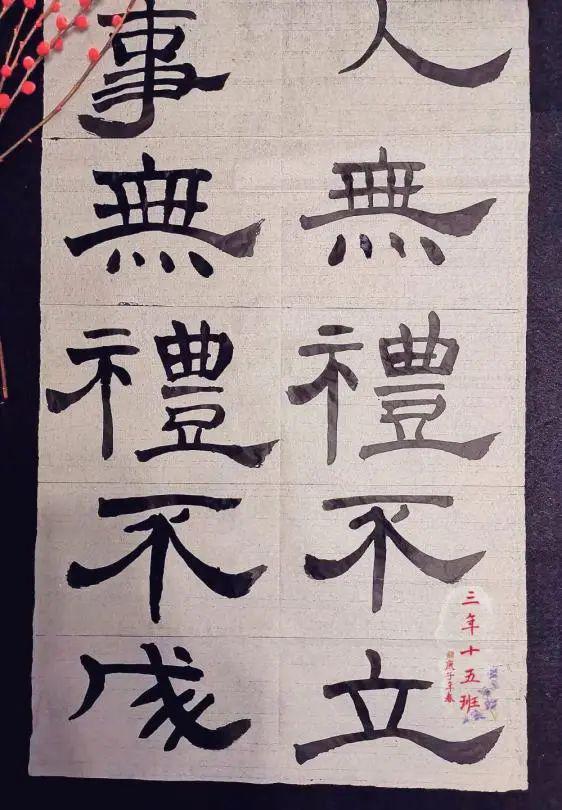 人無禮不立
事無禮不成
三年十五班
庚子年春